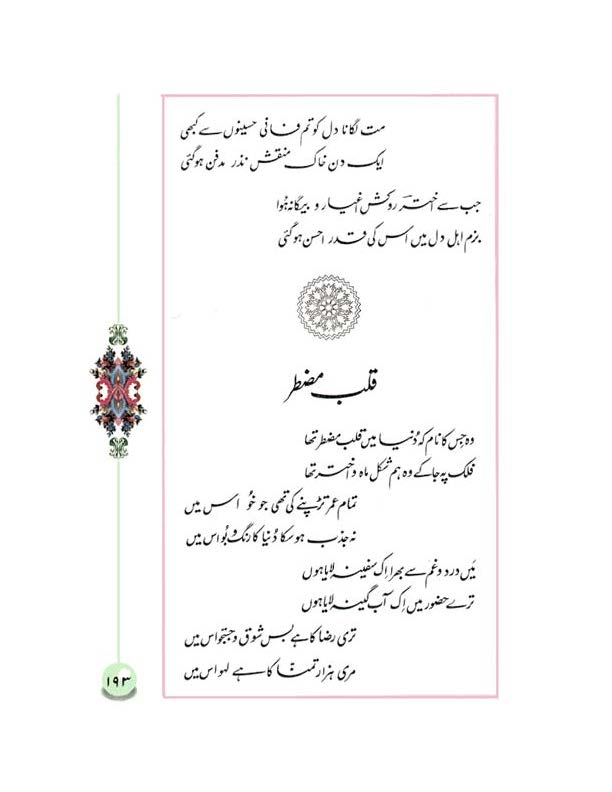 مت لگانا دل کو تم فانی حسینوں سے کبھی
ایک دن خاک منقش نذر مدفن ہوگئی
جب سے اختر روکش اغیار و بیگانہ ہُوا
بزم اہل دل میں اس کی قدر احسن ہوگئی
قلب مضطر
وہ جس کا نام کہ دُنیا میں قلب مضطر تھا
فلک پہ جاکے وہ ہم شکل ماہ و اختر تھا
تمام عمر تڑپنے کی تھی جو خُو اس میں
نہ جذب ہوسکا دُنیا کا رنگ و بُو اس میں
مَیں درد و غم سے بھرا اِک سفینہ لایا ہوں
ترے حضور میں اِک آب گینہ لایا ہوں
تری رضا کا ہے بس شوق و جستجو اس میں
مری ہزار تمنّا کا ہے لہو اس میں
۱۹۳